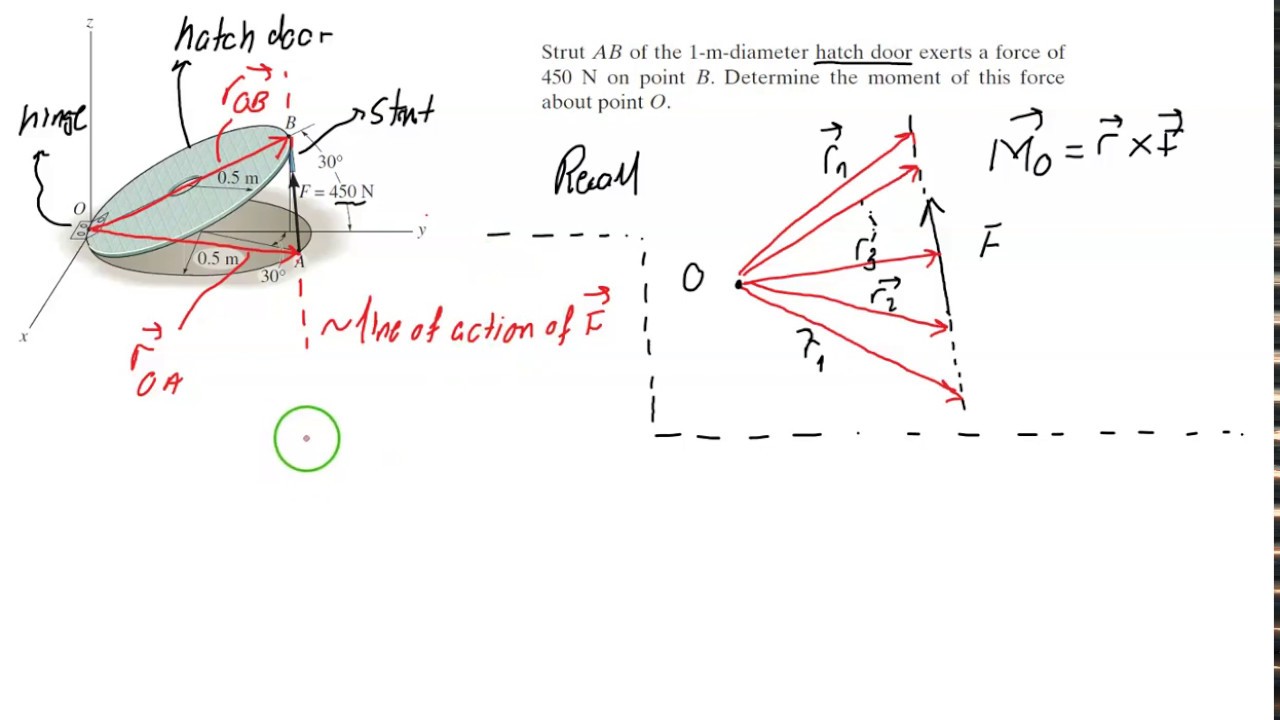 z
hatch door
r OB
hinge
B
strut
30°
0.5 m
F = 450 N
O
y
0.5 m
A
30°
x
r OA
~ line of action of F
Strut AB of the 1-m-diameter hatch door exerts a force of
450 N on point B. Determine the moment of this force
about point O.
Recall
rn
M0 = r × F
r3
F
O
r2
r1